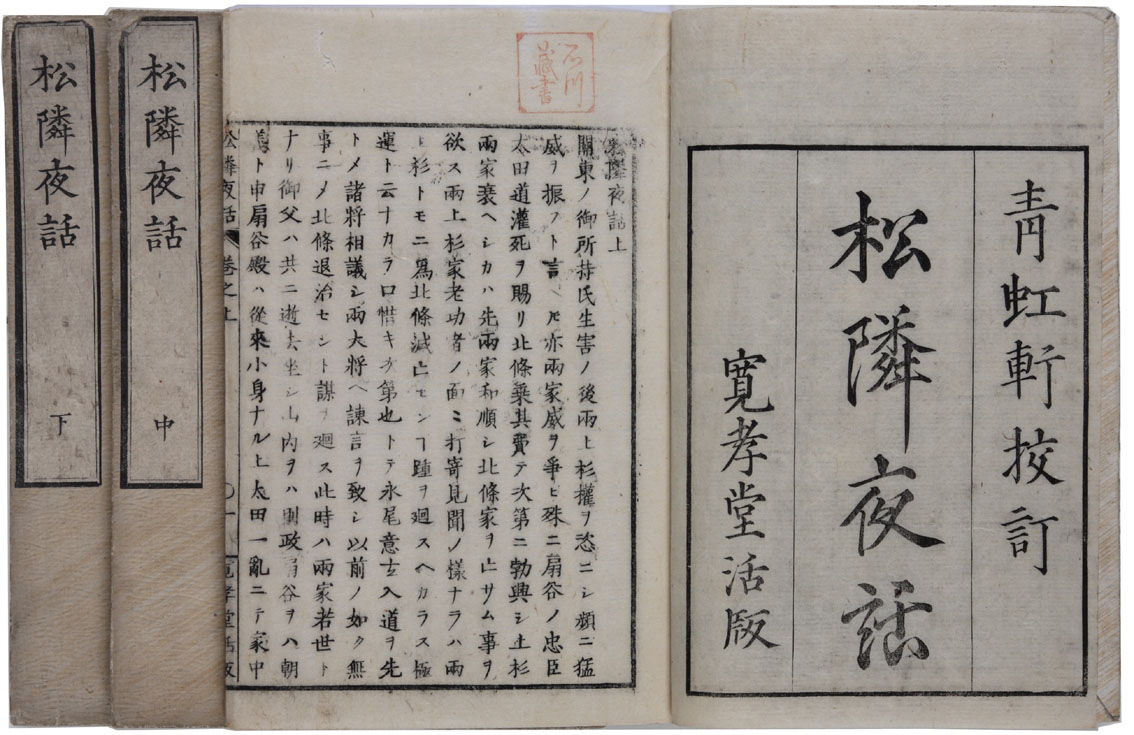 青虹軒挍訂
松隣夜話
寬孝堂活版
石川
藏書
松隣夜話上
關東ノ御所持氏生害ノ後兩上杉權ヲ恣ニシ頻ニ猛
威ヲ振フト言ヘ𪜈亦兩家威ヲ爭ヒ殊ニ扇谷ノ忠臣
太田道灌死ヲ賜リ北條乘其費テ次第ニ勃興シ上杉
兩家衰ヘシカハ先兩家和順シ北條家ヲ亡サム事ヲ
欲ス兩上杉家老功者ノ面ニ打寄見聞ノ樣ナラハ兩
上杉トモニ爲北條滅亡センヿ踵ヲ廻スヘカラス極
運ト云ナカラ口惜キ次第也トテ永尾意玄入道ヲ先
トメ諸將相議シ兩大將ヘ諫言ヲ致シ以前ノ如ク無
事ニメ北條退治セント謀ヲ廻ス此時ハ兩家若世ト
ナリ御父ハ共ニ逝去坐シ山内ヲハ則政扇谷ヲハ朝
ト申扇谷殿ハ從來小身ナル上太田一亂ニテ家中
松隣夜話 卷之上 〇一 寬孝堂活版
松隣夜話 中
松隣夜話 下